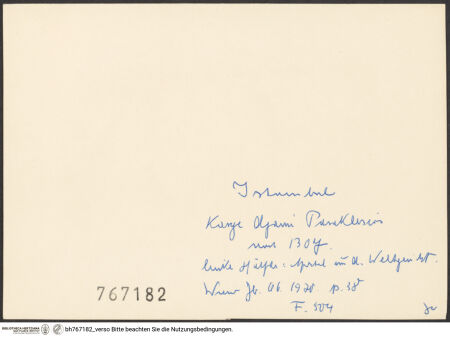 Istanbul
Karye Djami Paraklesios
nach 1307.
linke Hälfte: Apostel aus d. Weltgericht.
Wiener Jb. 1978 p. 38
F. 504
767182
BIBLIOTHECA HERTZIANA
bh767182_verso Bitte beachten Sie die Nutzungsbedingungen.